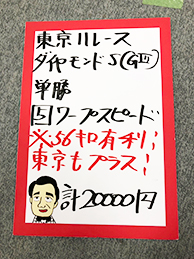 東京11レース
ダイヤモンドS(GⅢ)
単勝
5ワープスピード
※56キロ有利!
東京もプラス!
計20000円